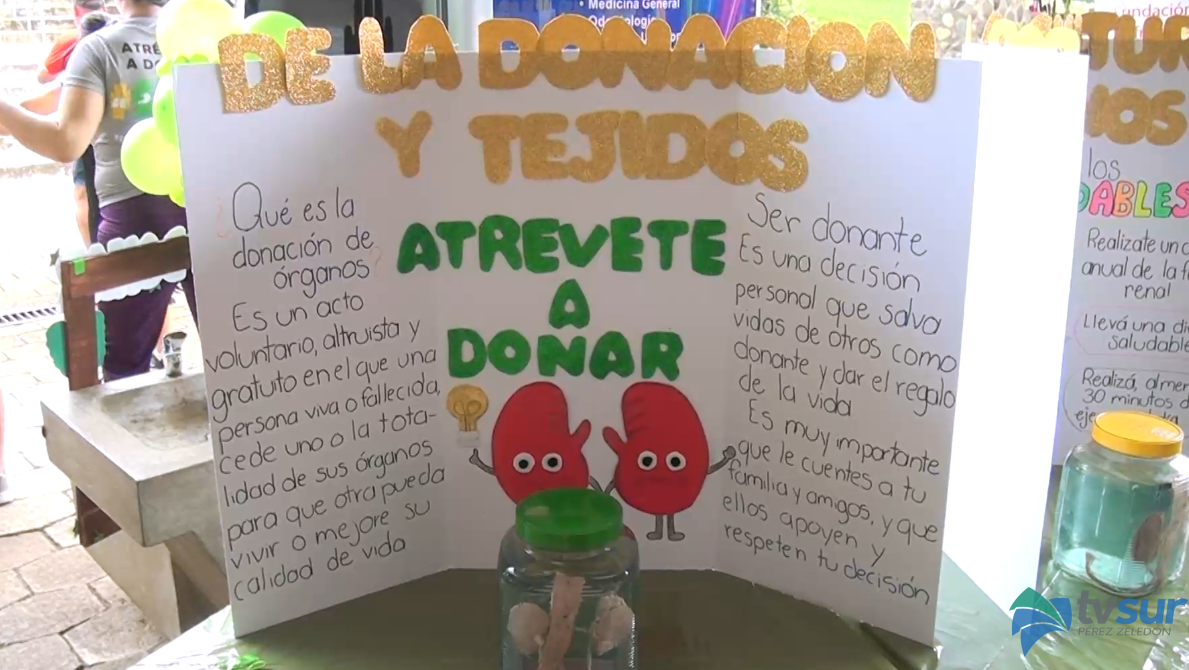 • Medicina General
DE LA DONACION
Y TEJIDOS
¿Qué es la
donación de
órganos?
Es un acto
voluntario, altruista y
gratuito en el que una
persona viva o fallecida,
cede uno o la tota-
lidad de sus órganos
para que otra pueda
vivir o mejore su
calidad de vida
ATREVETE
A
DONAR
Ser donante
Es una decisión
personal que salva
vidas de otros como
donante y dar el regalo
de la vida
Es muy importante
que le cuentes a tu
familia y amigos, y que
ellos apoyen y
respeten tu decisión
los
DABLES
Realizate un
anual de la
renal
Llevá una
saludable
Realizá,
30 minutos
tvsur
PÉREZ ZELEDÓN